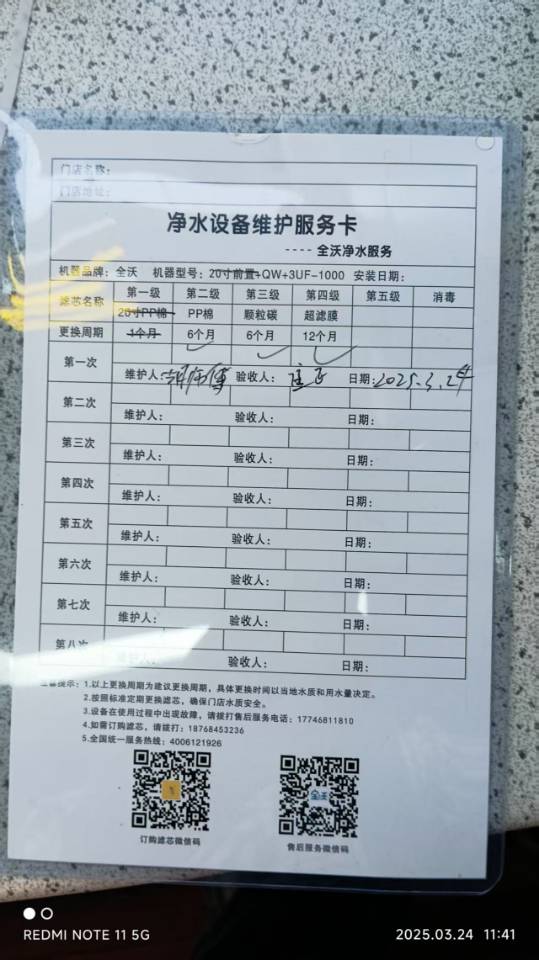 门店名称:
门店地址:
净水设备维护服务卡
---- 全沃净水服务
机器品牌: 全沃 机器型号: 20寸前置+QW+3UF-1000 安装日期:
滤芯名称 第一级 第二级 第三级 第四级 第五级 消毒
20寸PP棉 PP棉 颗粒碳 超滤膜
更换周期 1个月 6个月 6个月 12个月
第一次
维护人: 验收人: 日期: 2025.3.24
第二次
维护人: 验收人: 日期:
第三次
维护人: 验收人: 日期:
第四次
维护人: 验收人: 日期:
第五次
维护人: 验收人: 日期:
第六次
维护人: 验收人: 日期:
第七次
维护人: 验收人: 日期:
第八次
维护人: 验收人: 日期:
提示: 1.以上更换周期为建议更换周期, 具体更换时间以当地水质和用水量决定。
2.按照标准定期更换滤芯, 确保门店水质安全。
3.设备在使用过程中出现故障, 请拨打售后服务电话: 17746811810
4.如需订购滤芯, 请拨打: 18768453236
5.全国统一服务热线: 4006121926
全沃
订购滤芯微信码 售后服务微信码
REDMI NOTE 11 5G 2025.03.24 11:41